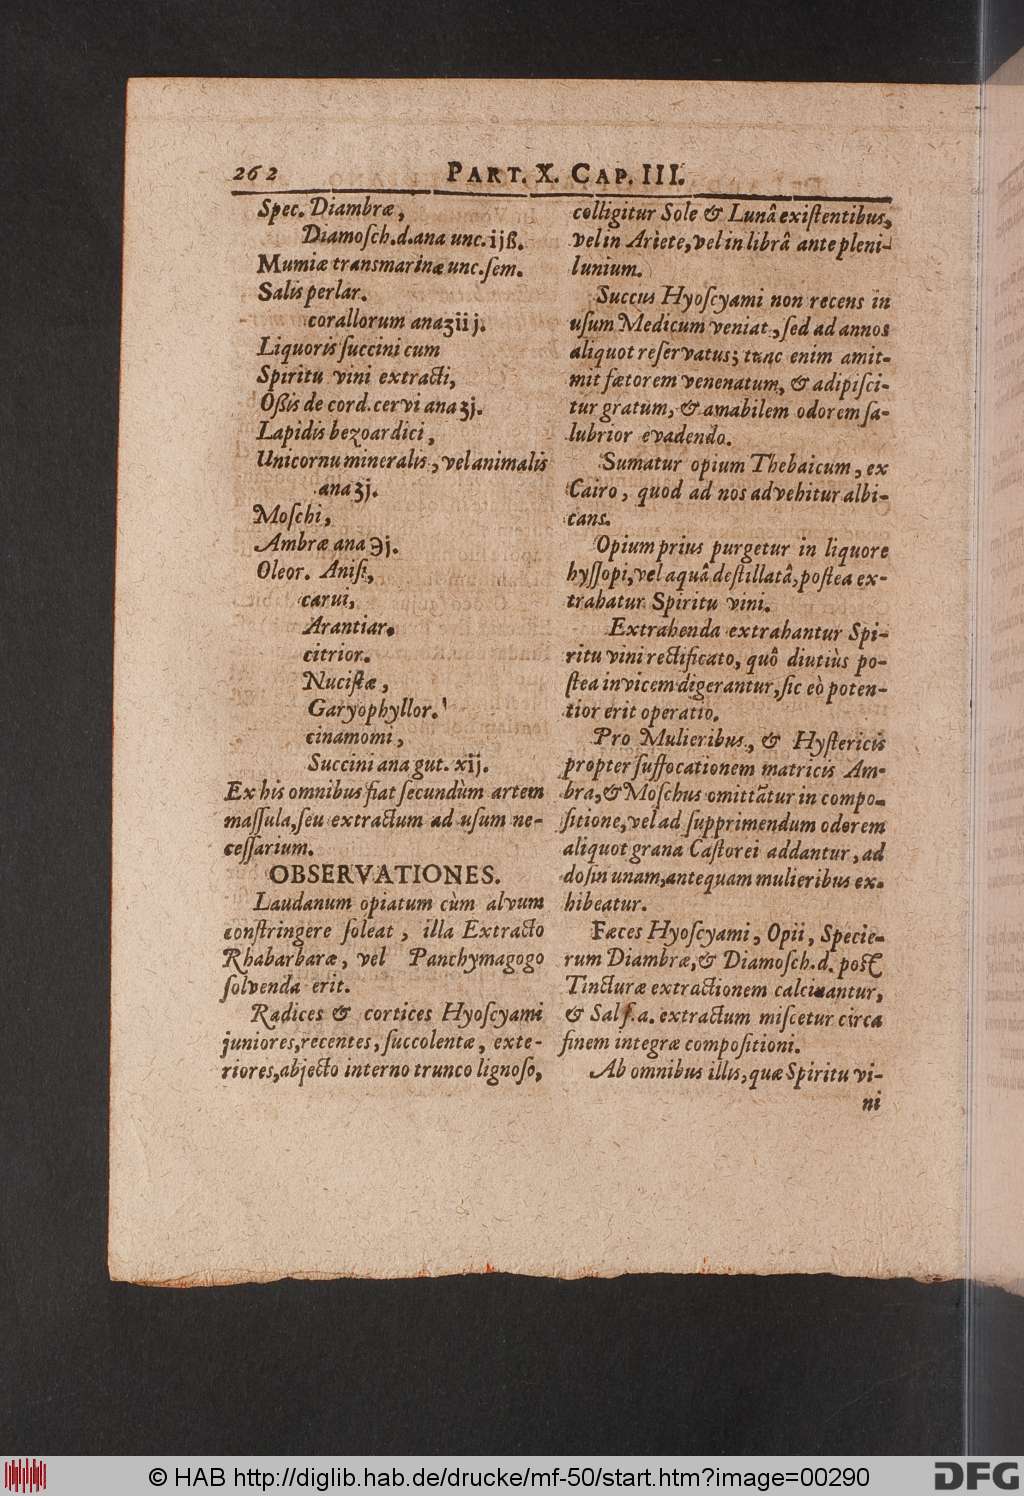 262 PART. X. CAP. III.
Spec. Diambræ,
Diamoſch.d.ana unc.ijß.
Mumiæ transmarinæ unc.ſem.
Salis perlar.
corallorum anaʒiij.
Liquoris ſuccini cum
Spiritu vini extracti,
Oßis de cord.cervi anaʒj.
Lapidis bezoardici,
Unicornu mineralis, vel animalis
anaʒj.
Moſchi,
Ambræ ana℈j.
Oleor. Aniſi,
carui,
Arantiar.
citrior.
Nuciſtæ,
Garyophyllor.
cinamomi,
Succini ana gut. xij.
Ex his omnibus fiat ſecundùm artem
maſſula, ſeu extractum ad uſum ne-
ceſſarium.
OBSERVATIONES.
Laudanum opiatum cùm alvum
conſtringere ſoleat, illa Extracto
Rhabarbaræ, vel Panchymagogo
ſolvenda erit.
Radices & cortices Hyoſcyami
juniores, recentes, ſuccolentæ, exte-
riores, abjecto interno trunco lignoſo,
colligitur Sole & Lunâ exiſtentibus,
vel in Ariete, vel in librâ ante pleni-
lunium.
Succus Hyoſcyami non recens in
uſum Medicum veniat, ſed ad annos
aliquot reſervatus; tunc enim amit-
mit fætorem venenatum, & adipiſci-
tur gratum, & amabilem odorem ſa-
lubrior evadendo.
Sumatur opium Thebaicum, ex
Cairo, quod ad nos advehitur albi-
cans.
Opium prius purgetur in liquore
hyſſopi, vel aquâ deſtillatâ, poſtea ex-
trahatur Spiritu vini.
Extrahenda extrahantur Spi-
ritu vini rectificato, quô diutiùs po-
ſtea invicem digerantur, ſic eò poten-
tior erit operatio.
Pro Mulieribus, & Hyſtericis
propter ſuffocationem matricis Am-
bra, & Moſchus omittãtur in compo-
ſitione, vel ad ſupprimendum odorem
aliquot grana Caſtorei addantur, ad
doſin unam, antequam mulieribus ex-
hibeatur.
Fæces Hyoſcyami, Opii, Specie-
rum Diambræ, & Diamoſch.d. poſt
Tincturæ extractionem calcinantur,
& Sal ſ.a. extractum miſcetur circa
finem integræ compoſitioni.
Ab omnibus illis, quæ Spiritu vi-
ni
© HAB http://diglib.hab.de/drucke/mf-50/start.htm?image=00290
DFG